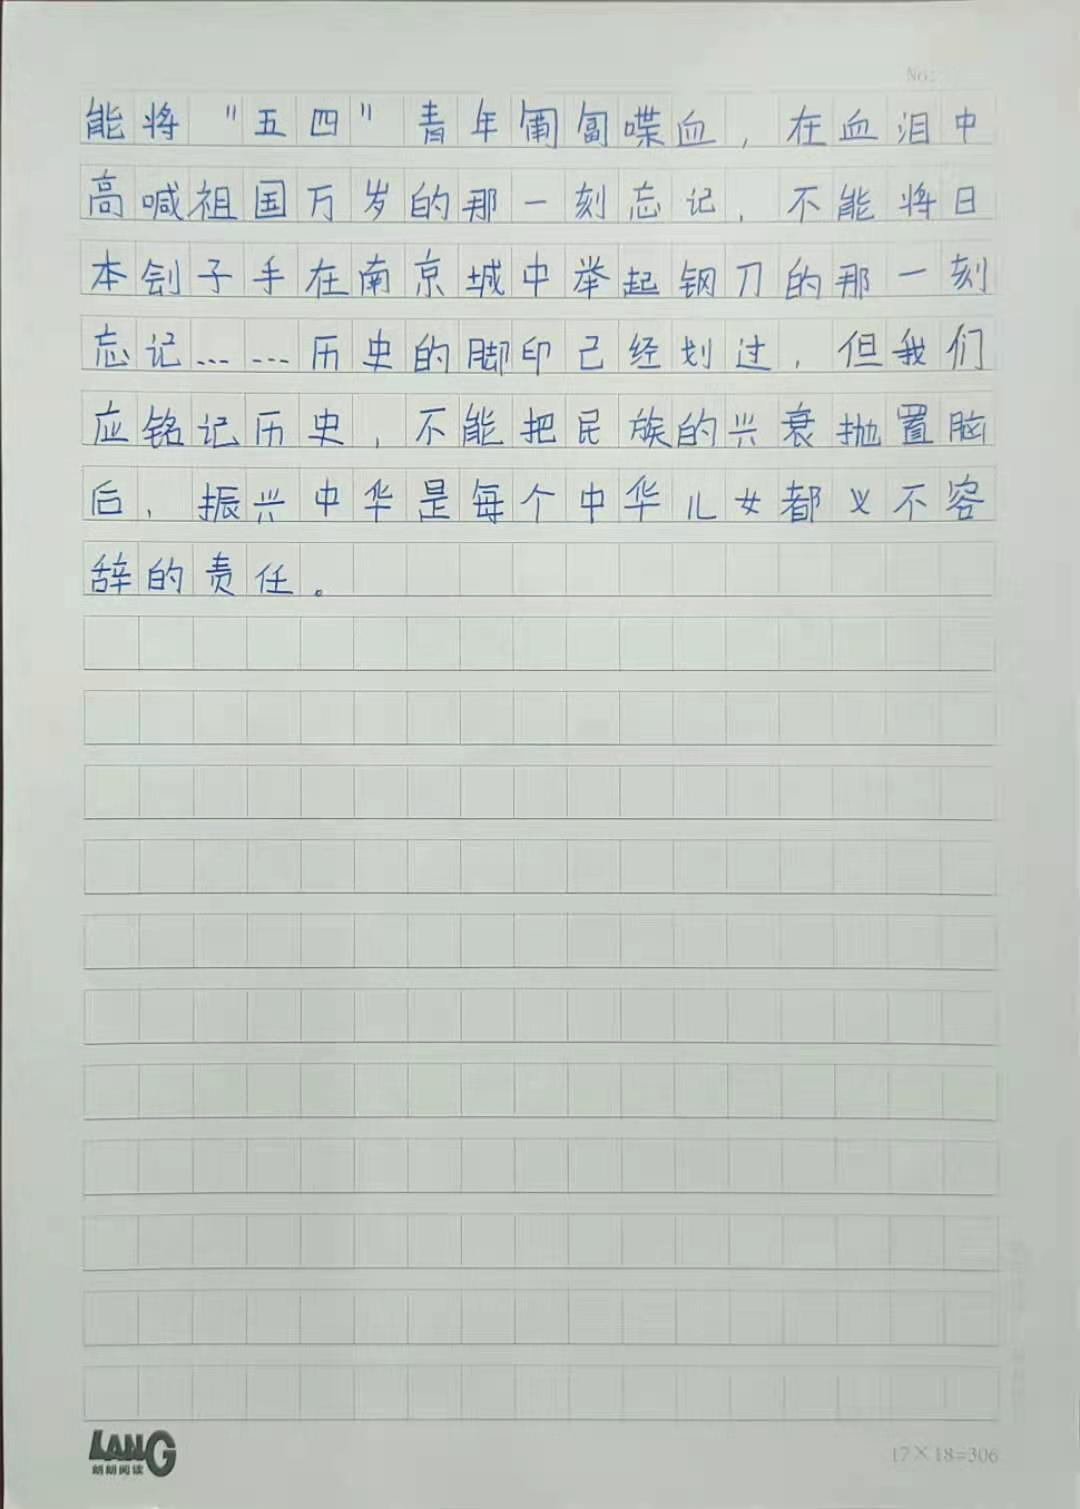 No:
能将"五四"青年匍匐喋血，在血泪中
高喊祖国万岁的那一刻忘记，不能将日
本刽子手在南京城中举起钢刀的那一刻
忘记……历史的脚印已经划过，但我们
应铭记历史，不能把民族的兴衰抛置脑
后，振兴中华是每个中华儿女都义不容
辞的责任。
LANG
朗朗阅读
17×18=306